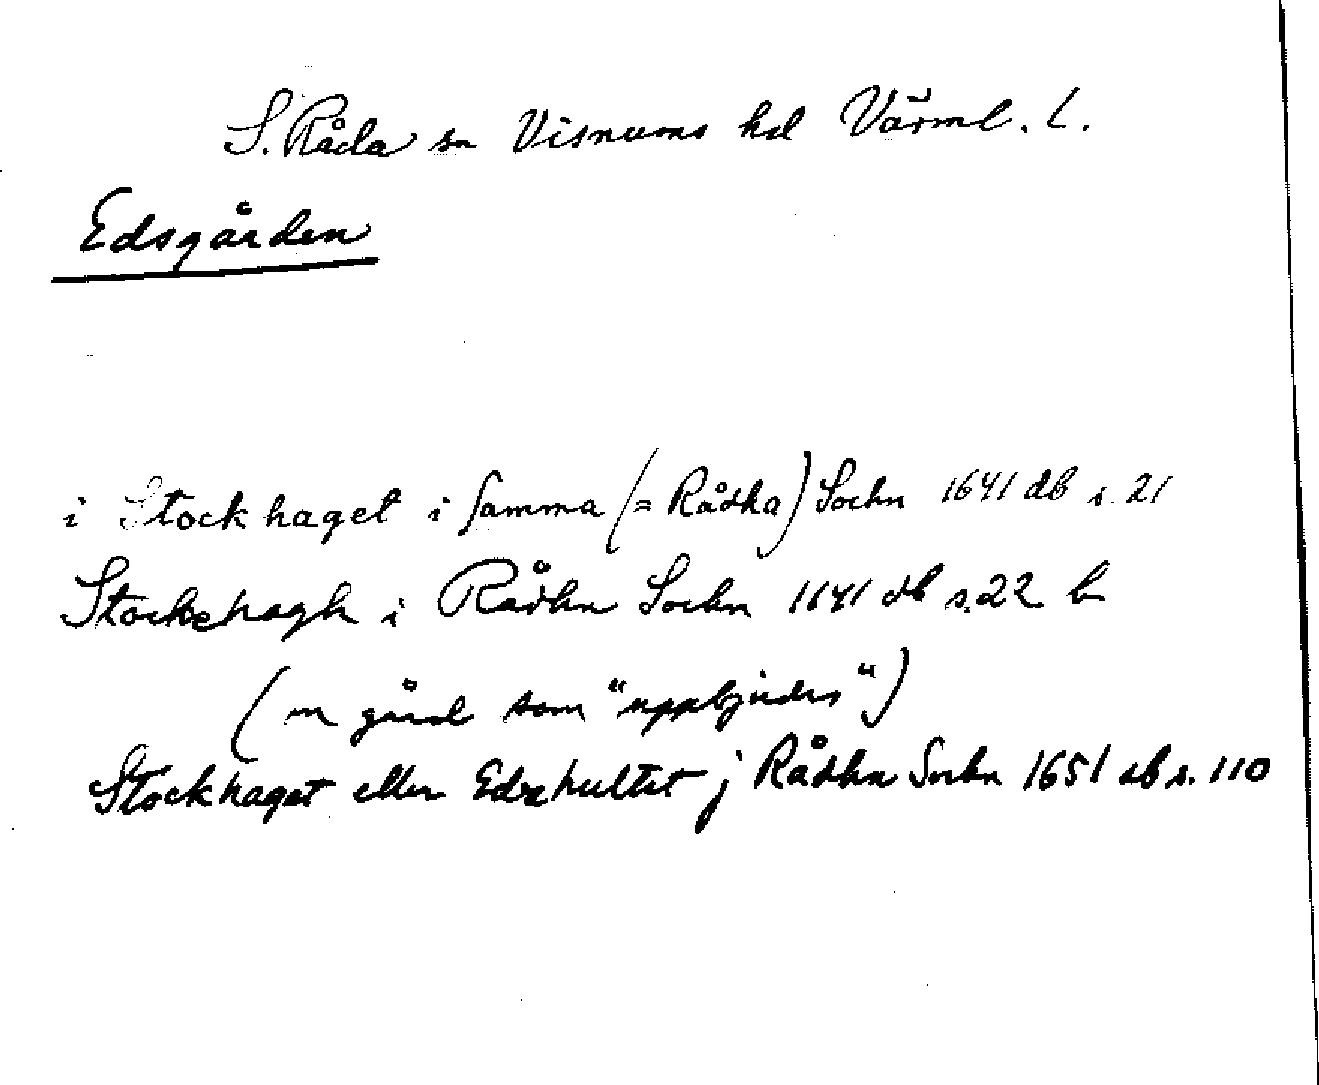 S. Råda sn Visnums hd Värml. l.
Edsgården
i Stockhaget i samma (= Rådha) Sochn 1641 db s. 21
Stockehagh i Rådhu Sochn 1641 db s. 22 b
(en gård som "uppbjudes")
Stockhaget eller Edzhultet j Rådhu Sochn 1651 db s. 110